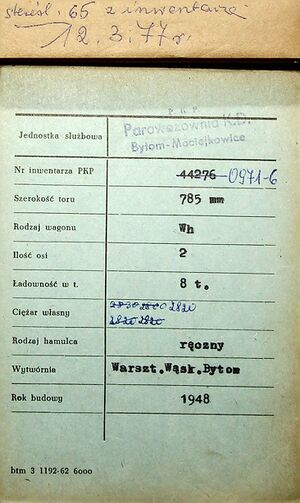 skreśl. 65 z inwentarza
12.3.77r.
P K P
Jednostka służbowa Parowozownia K.D.
Bytom-Maciejkowice
Nr inwentarza PKP 44276 0971-6
Szerokość toru 785 mm
Rodzaj wagonu Wh
Ilość osi 2
Ładowność w t. 8 t.
Ciężar własny 2820
2820 2820
Rodzaj hamulca ręczny
Wytwórnia Warszt.Wąsk.Bytom
Rok budowy 1948
btm 3 1192-62 6000